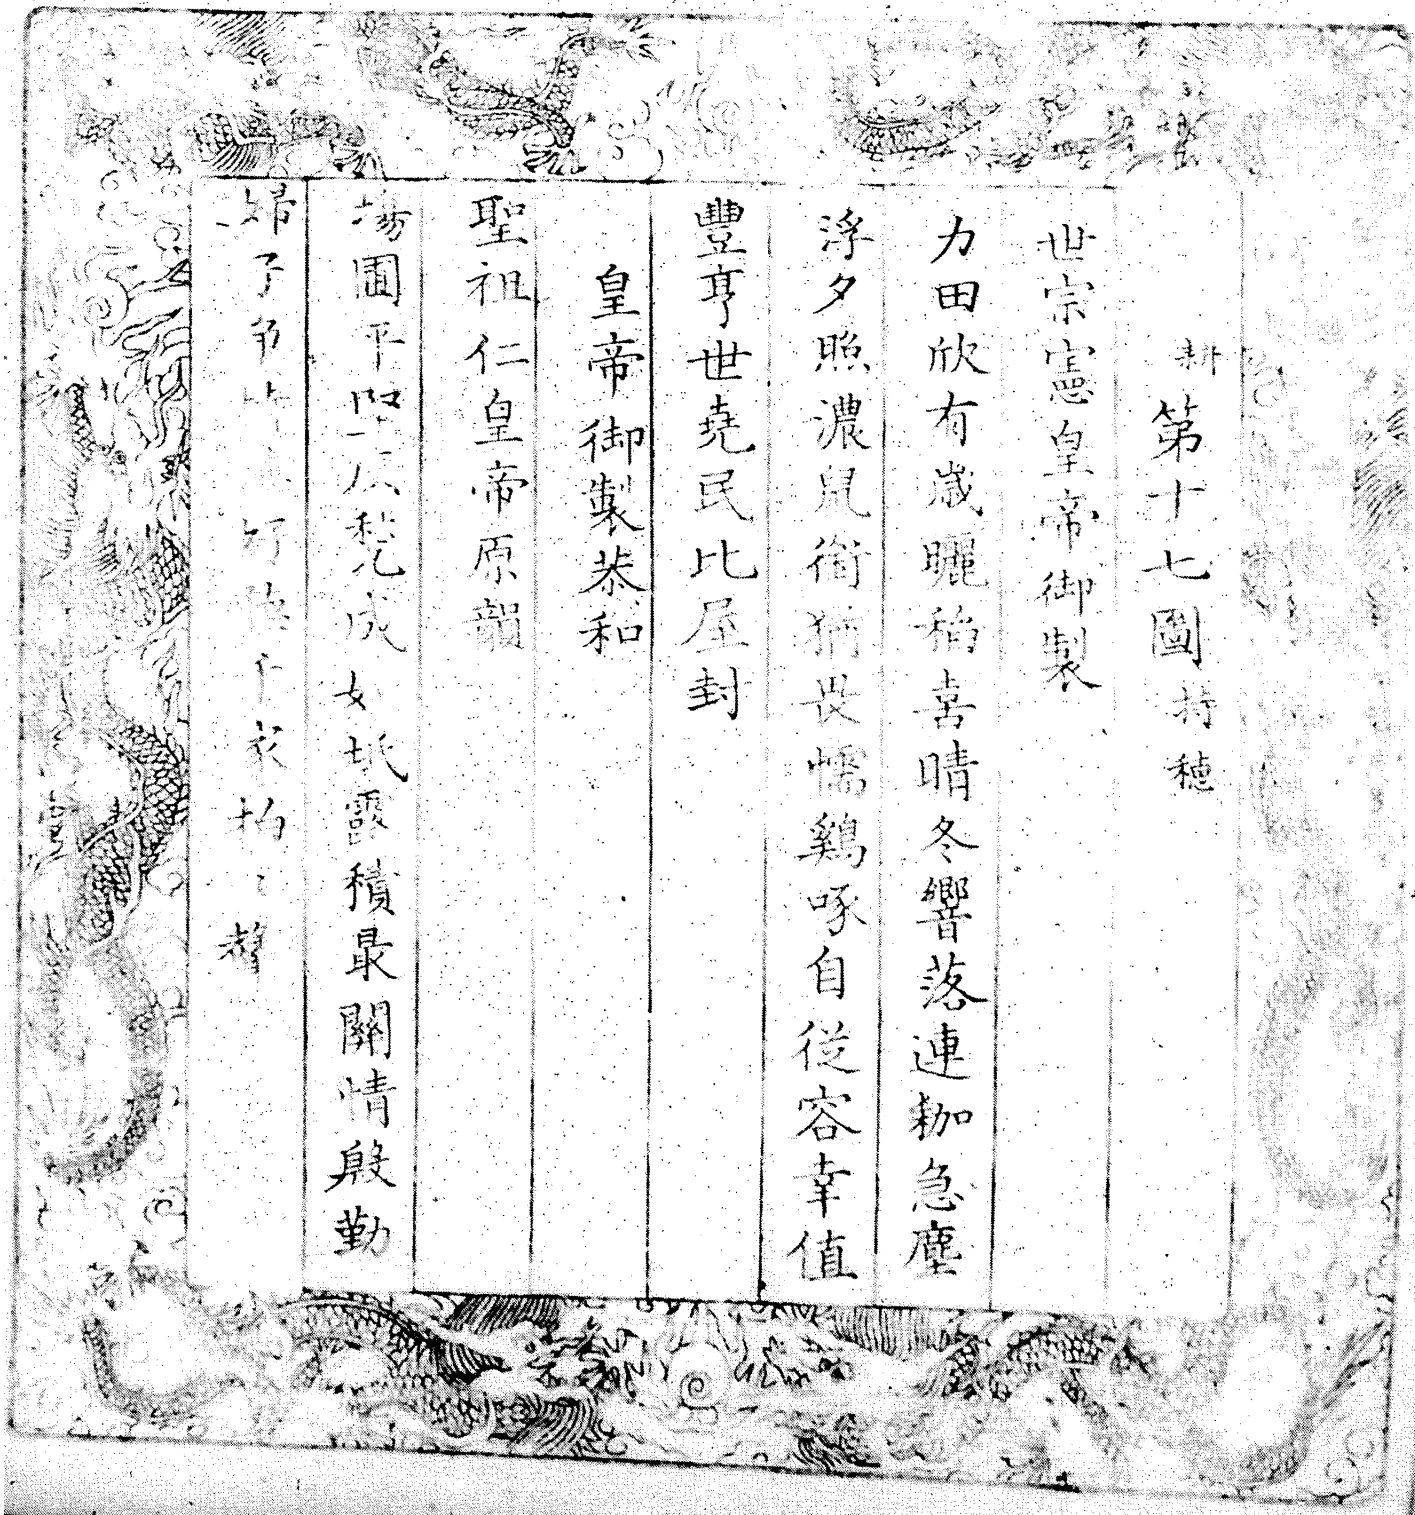 耕第十七圖持穗
世宗憲皇帝御製
力田欣有歲曬稻喜晴冬響落連耞急塵
浮夕照濃鼠銜猶畏懦雞啄自從容幸值
豐亨世堯民比屋封
皇帝御製恭和
聖祖仁皇帝原韻
場圃平堅灰甃成如坻露積最關情殷勤
婦子家拍聲